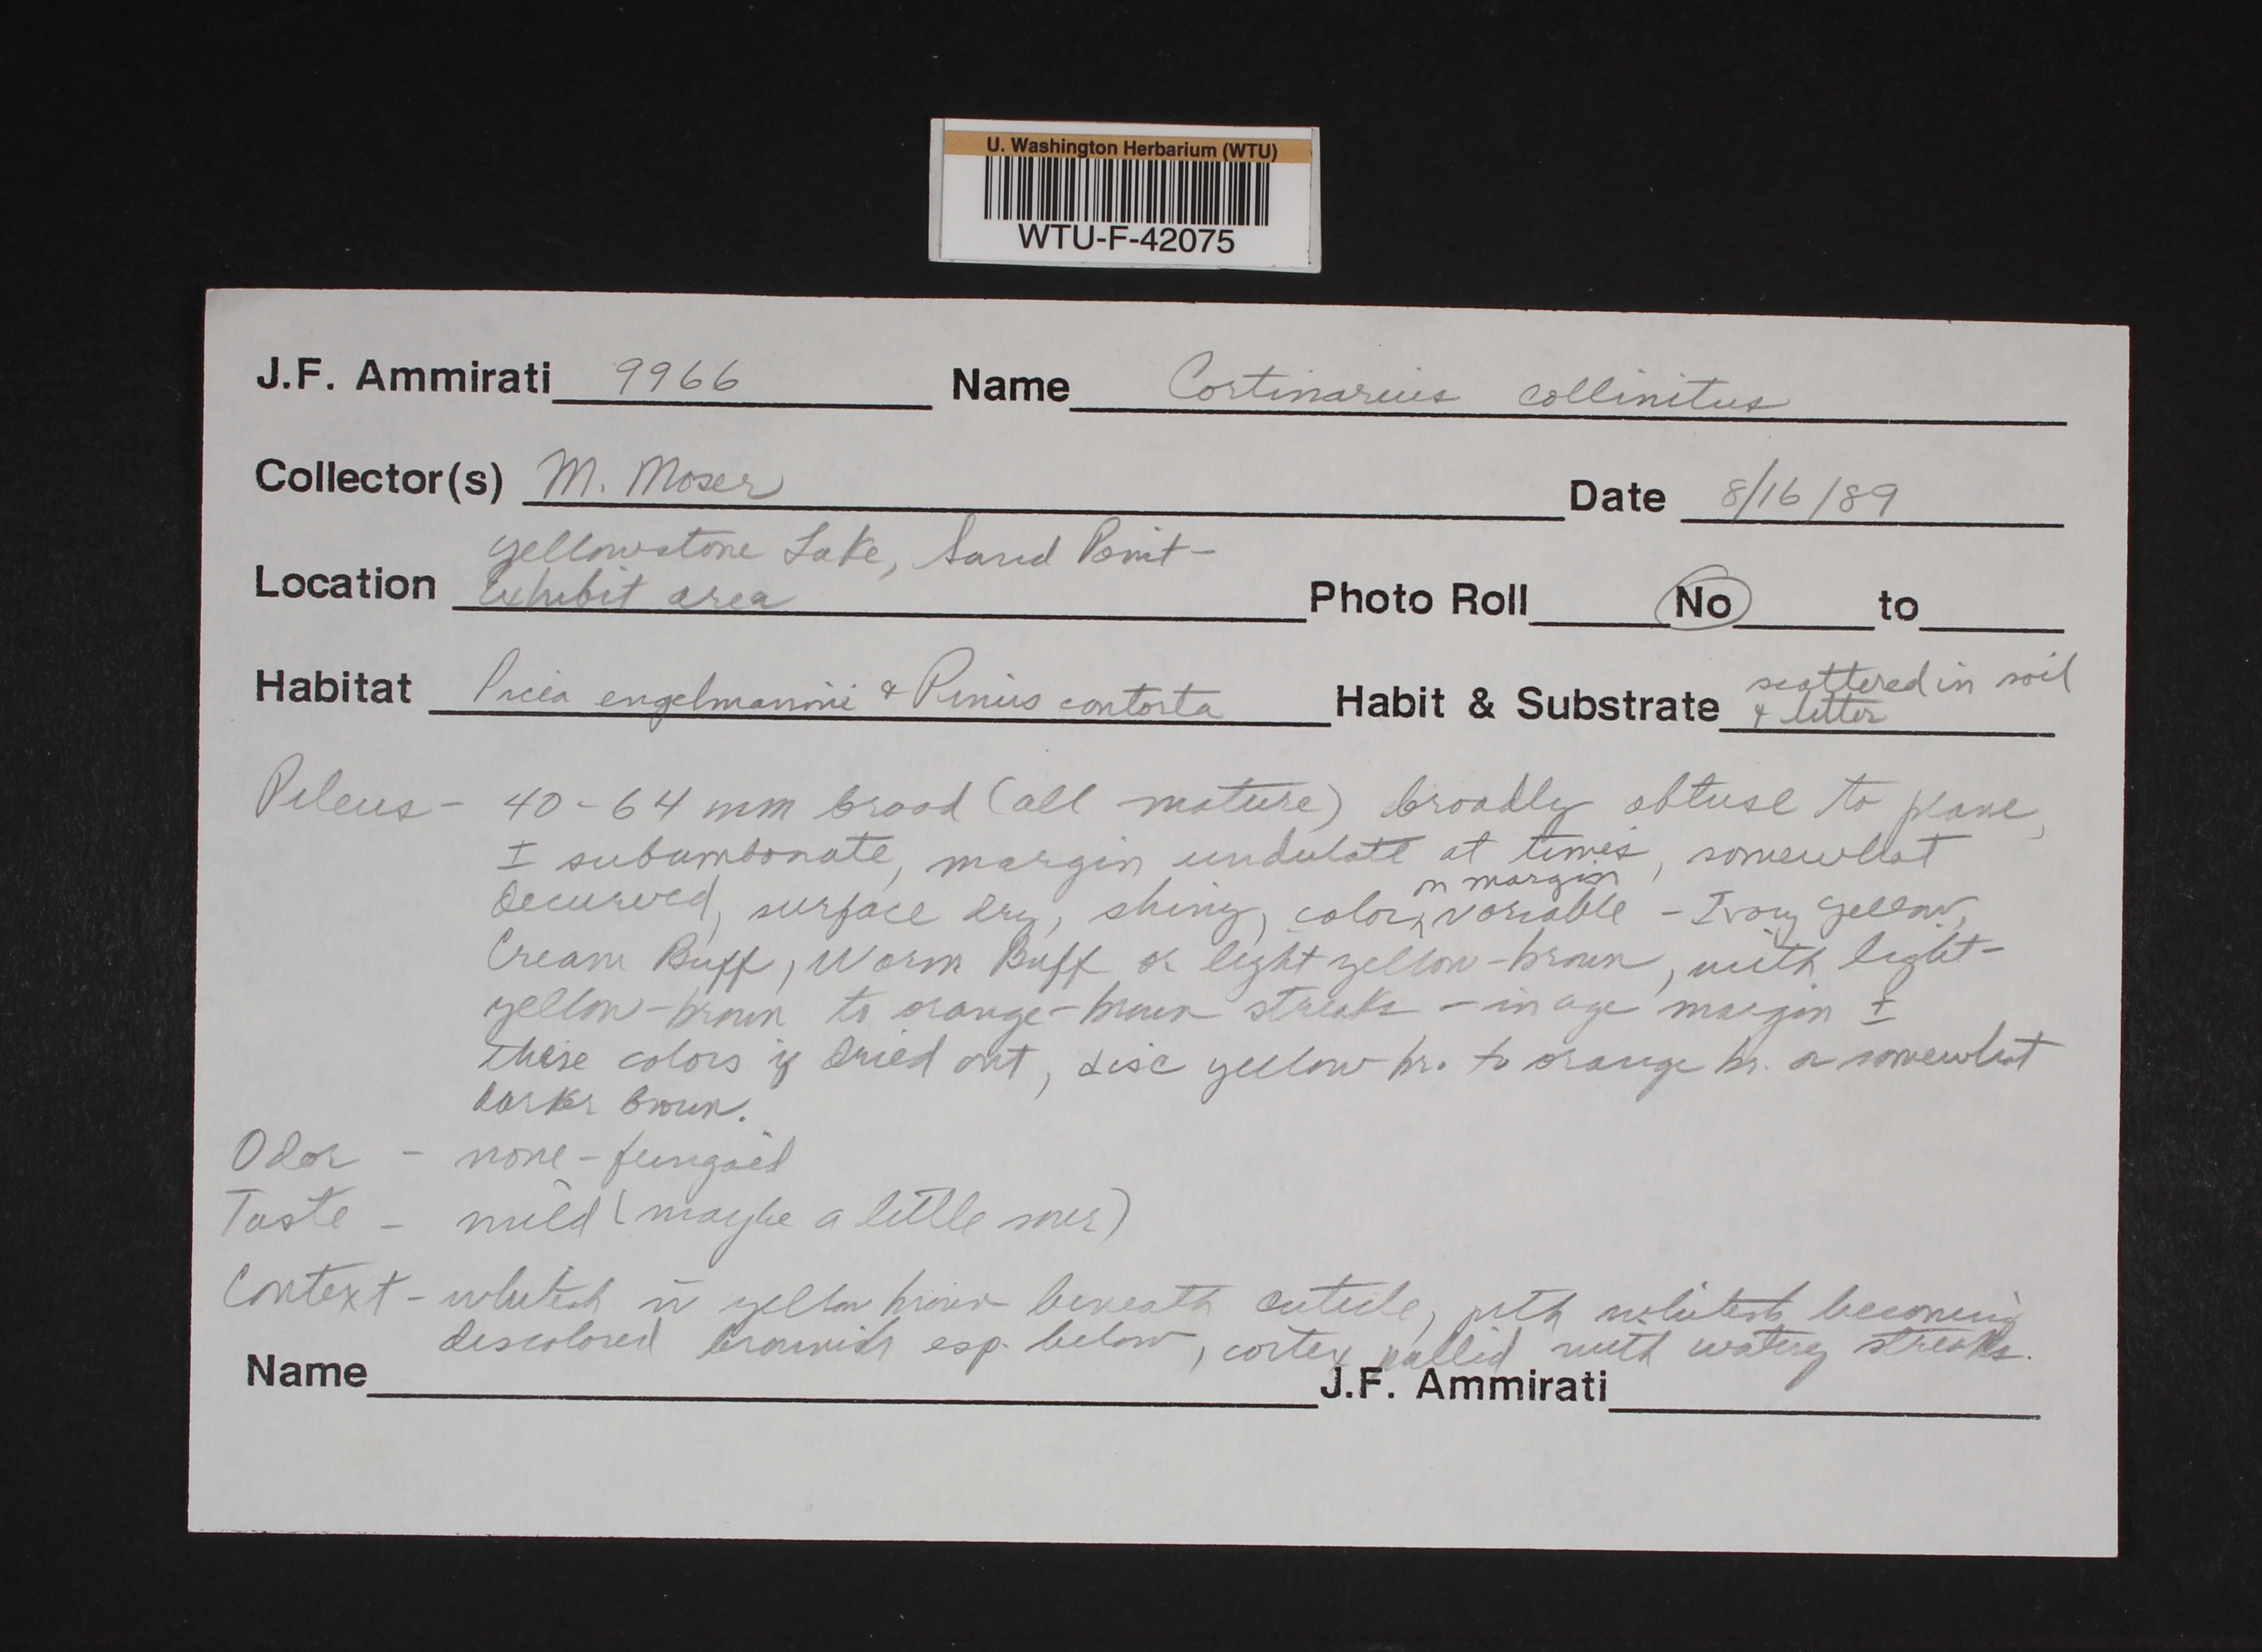 U. Washington Herbarium (WTU)
WTU-F-42075
J.F. Ammirati 9966 Name Cortinarius collinitus
Collector(s) M. Moser Date 8/16/89
Yellowstone Lake, Sand Point-
Location Exhibit area Photo Roll No to
Habitat Picea engelmannii & Pinus contorta Habit & Substrate scattered in soil
& litter
Pileus - 40-64 mm broad (all mature) broadly obtuse to plane,
± subumbonate, margin undulate at times, somewhat
on margin
decurved, surface dry, shiny, color variable - Ivory Yellow,
Cream Buff, Warm Buff or light yellow-brown, with light-
yellow-brown to orange-brown streaks - in age margin ±
these colors if dried out, disc yellow-br. to orange br. or somewhat
darker brown.
Odor - none-fungoid
Taste - mild (maybe a little sour)
Context - whitish yellow brown beneath cuticle, pith whitish becoming
discolored brownish esp. below, cortex pallid with watery streaks.
Name J.F. Ammirati